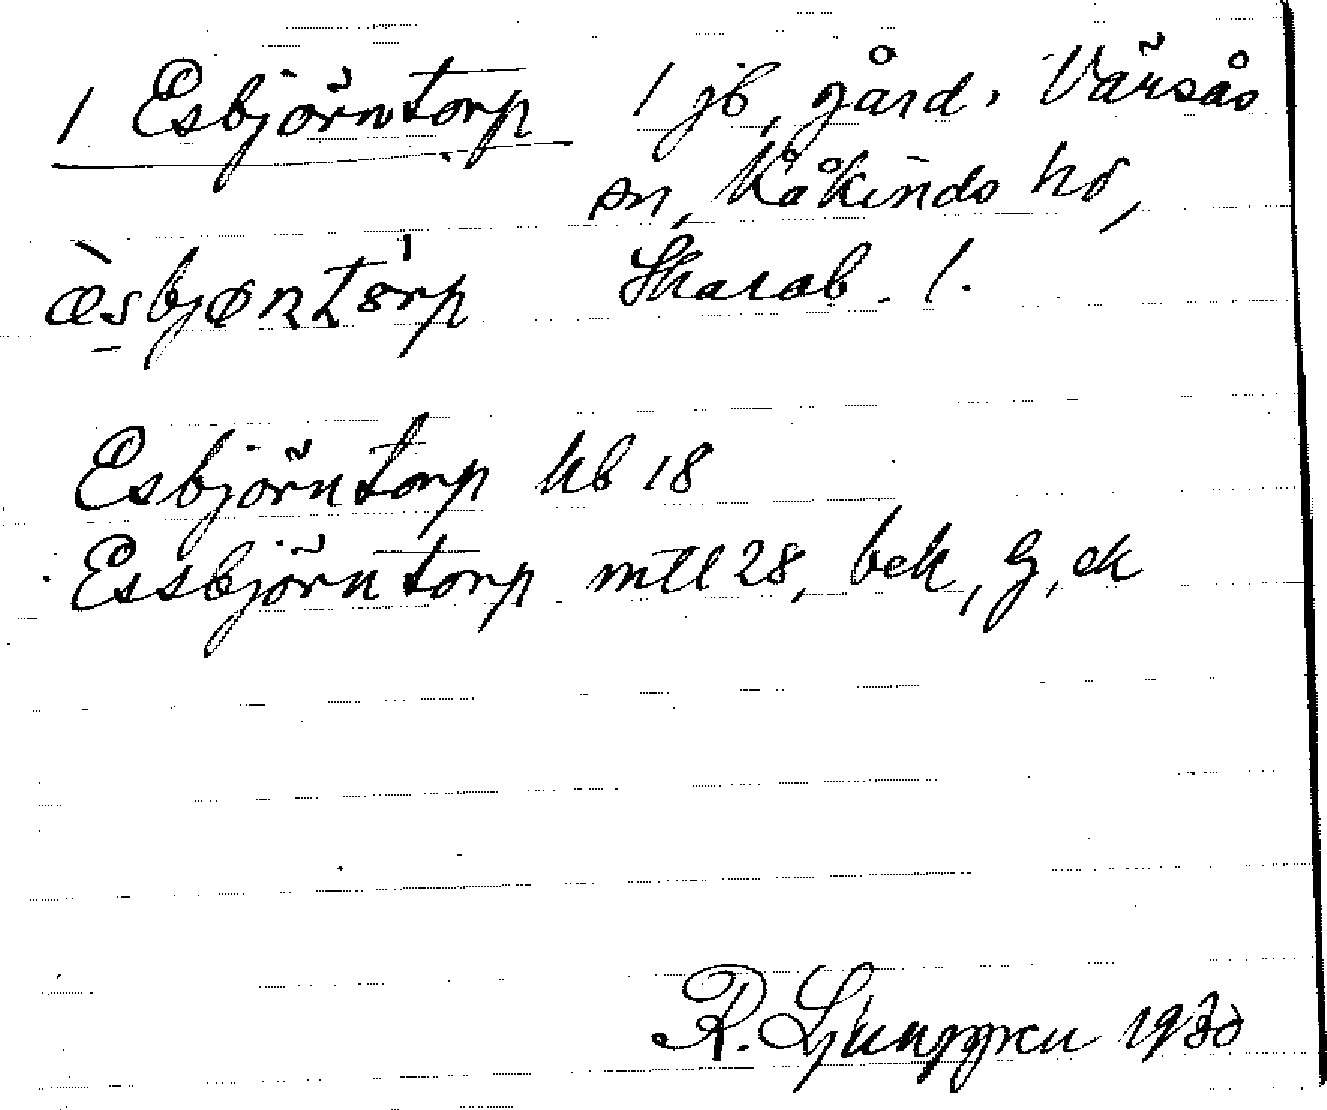 1 Esbjörntorp 1 jb, gård. Värsås
sn, Kåkinds hd,
Skarab. l.
Esbjörntorp kb 18
Essbjörntorp mtl 28, bek, G, ek
R. Ljunggren 1930